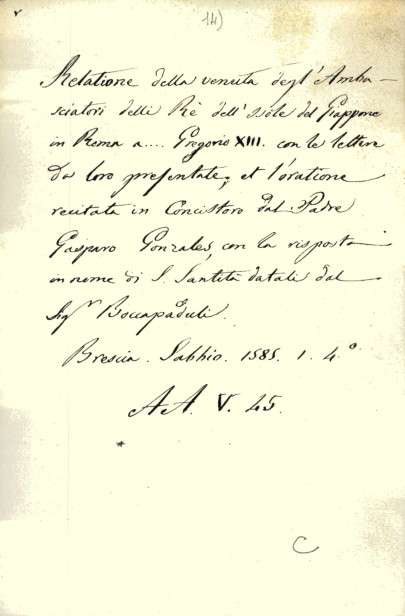 14)
Relatione della venuta degl' Amba-
sciatori delli Rè dell' Isole del Giappone
in Roma a.... Gregorio XIII. con le lettere
da loro presentate, et l'oratione
recitata in Concistoro dal Padre
Gasparo Gonzales, con la risposta
in nome di S. Santità datali dal
Sigr Boccapaduli.
Brescia. Sabbio. 1585. 1. 4.o
AA. V. 45.
*
C